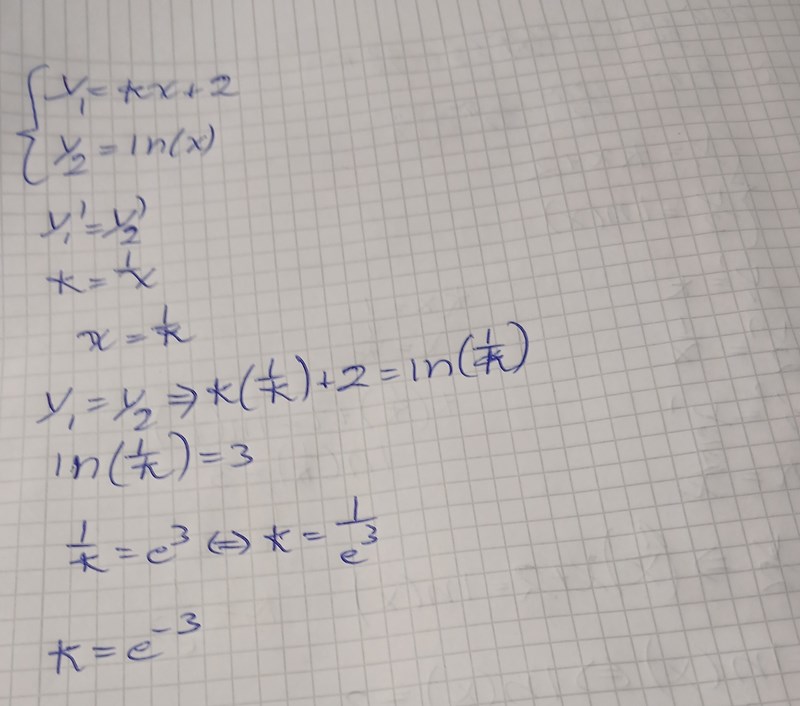 y₁ = kx + 2
y₂ = ln(x)
y₁' = y₂'
k = 1/x
x = 1/k
y₁ = y₂ ⇒ k(1/k) + 2 = ln(1/k)
ln(1/k) = 3
1/k = e³ ⇔ k = 1/e³
k = e⁻³